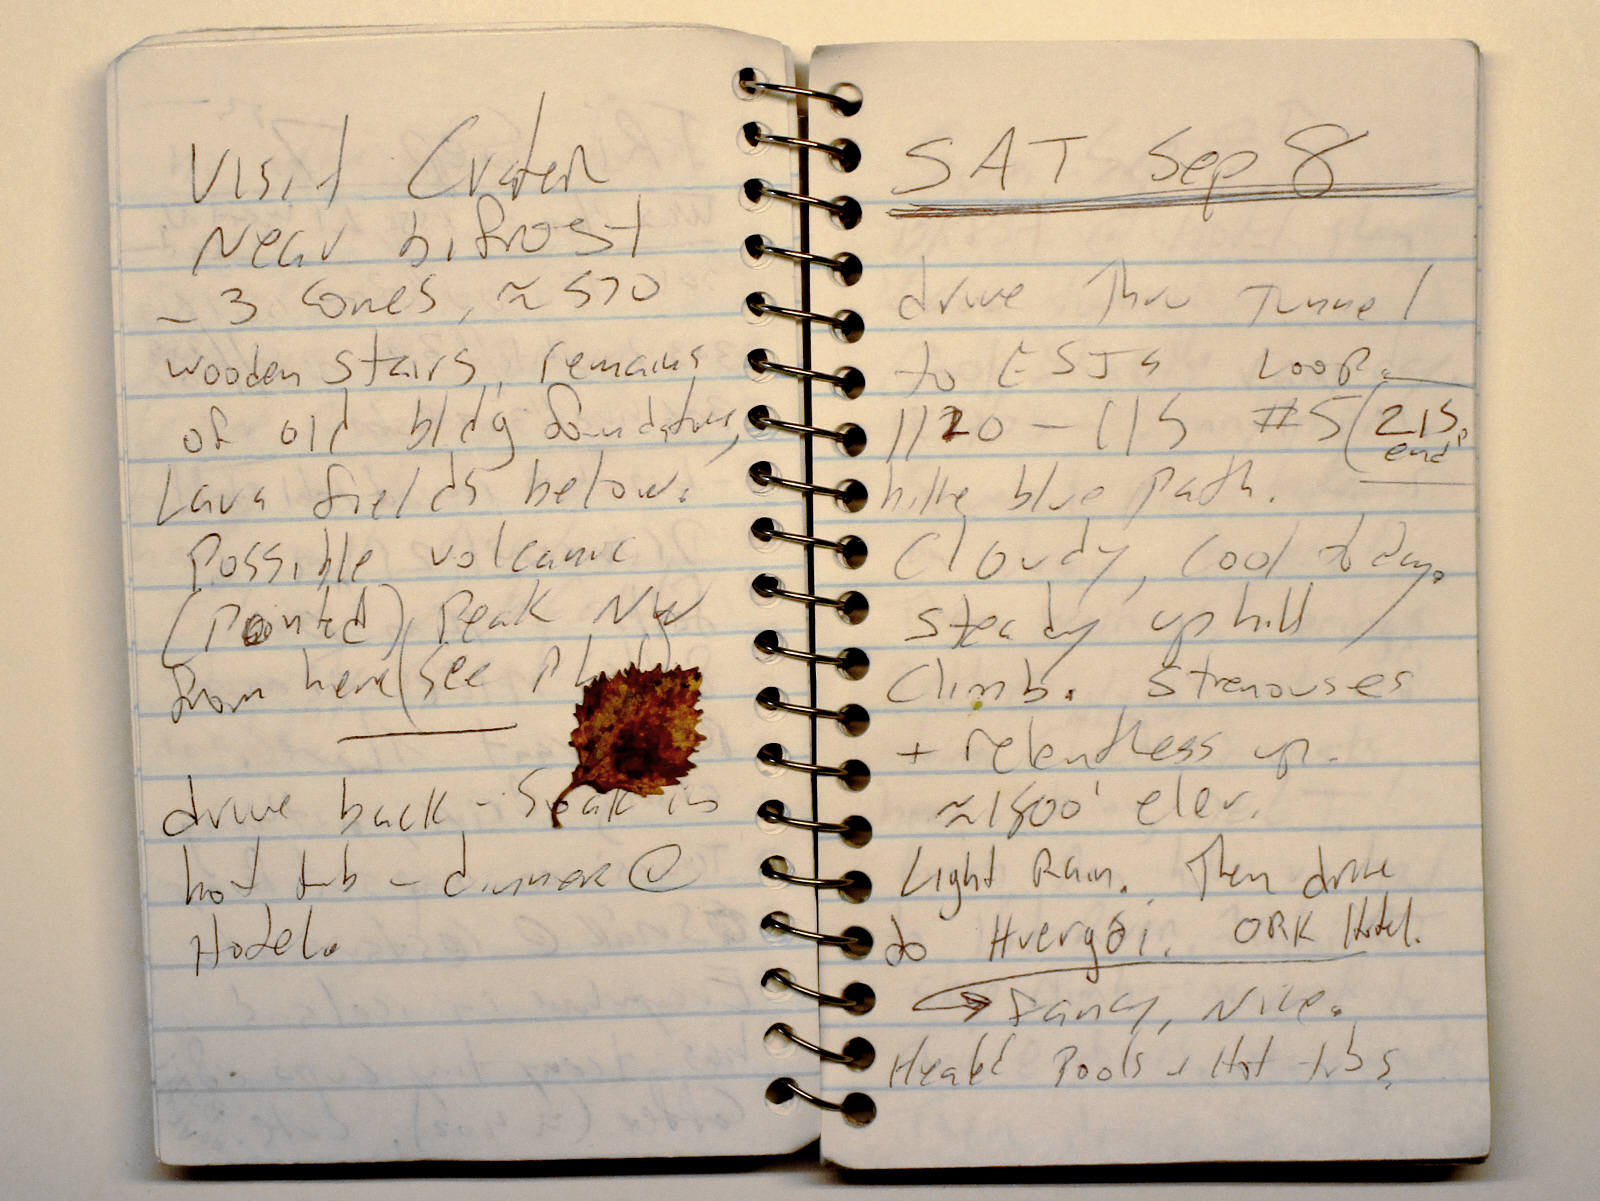 Visit Crater
Near bifrost
- 3 Cones, ≈ 570
wooden stairs, remains
of old bldg foundations,
Lava fields below.
Possible volcanic
(Pointed) Peak NW
from here (see
drive back - Soak in
hot tub - dinner @
Hotel.
SAT Sep 8
drive Thru Tunnel
to Loop.
1120 - 115 #5 (215
end
hike blue path.
Cloudy, cool today.
steady uphill
Climb. Strenouses
+ relentless up.
≈1800' elev.
Light Rain. Then drive
to ORK Hotel.
→ fancy, Nice.
Heated Pools + Hot tubs